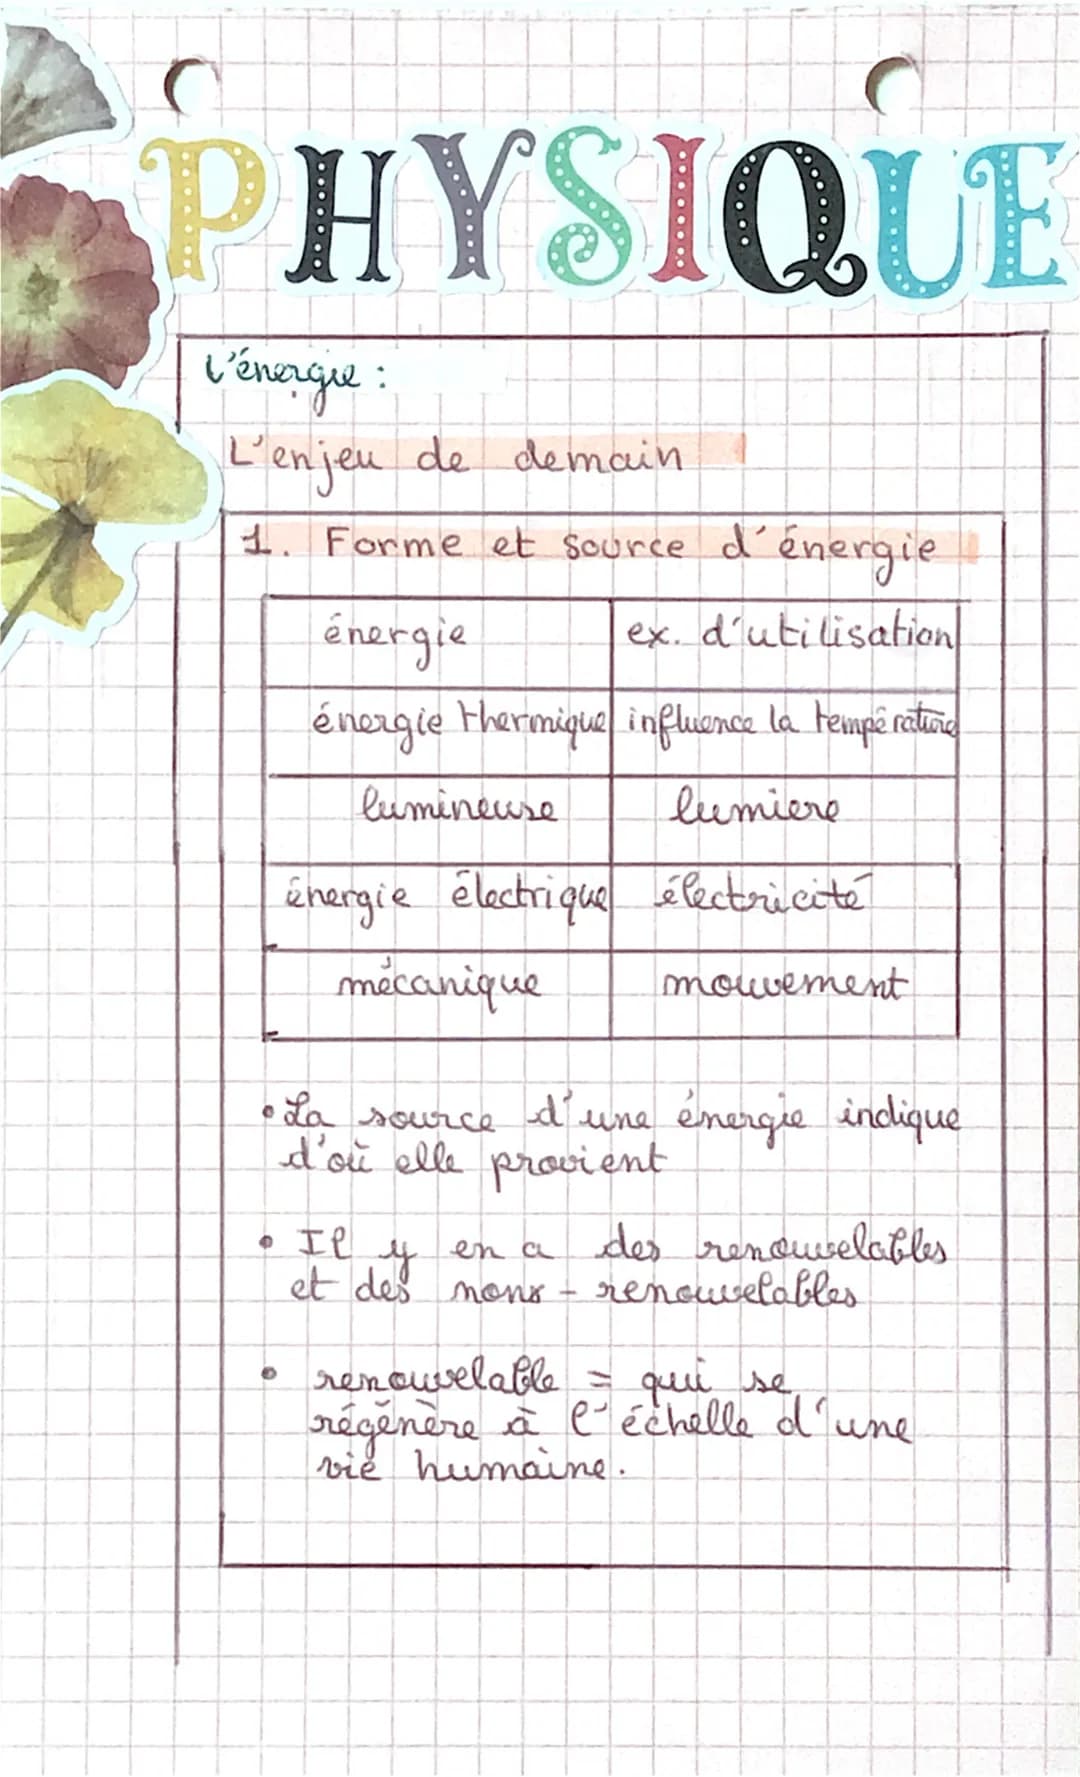 PHYSIQUE
L'énergie :
L'enjeu de demain
1. Forme et source d'énergie
énergie ex. d'utilisation
énergie thermique influence la température
lumineuse lumiere
énergie électrique électricité
mécanique mouvement
• La source d'une énergie indique
d'où elle provient
• Il y en a des renouvelables
et des nons - renouvelables
• renouvelable = qui se
régénère à l'échelle d'une
vie humaine.